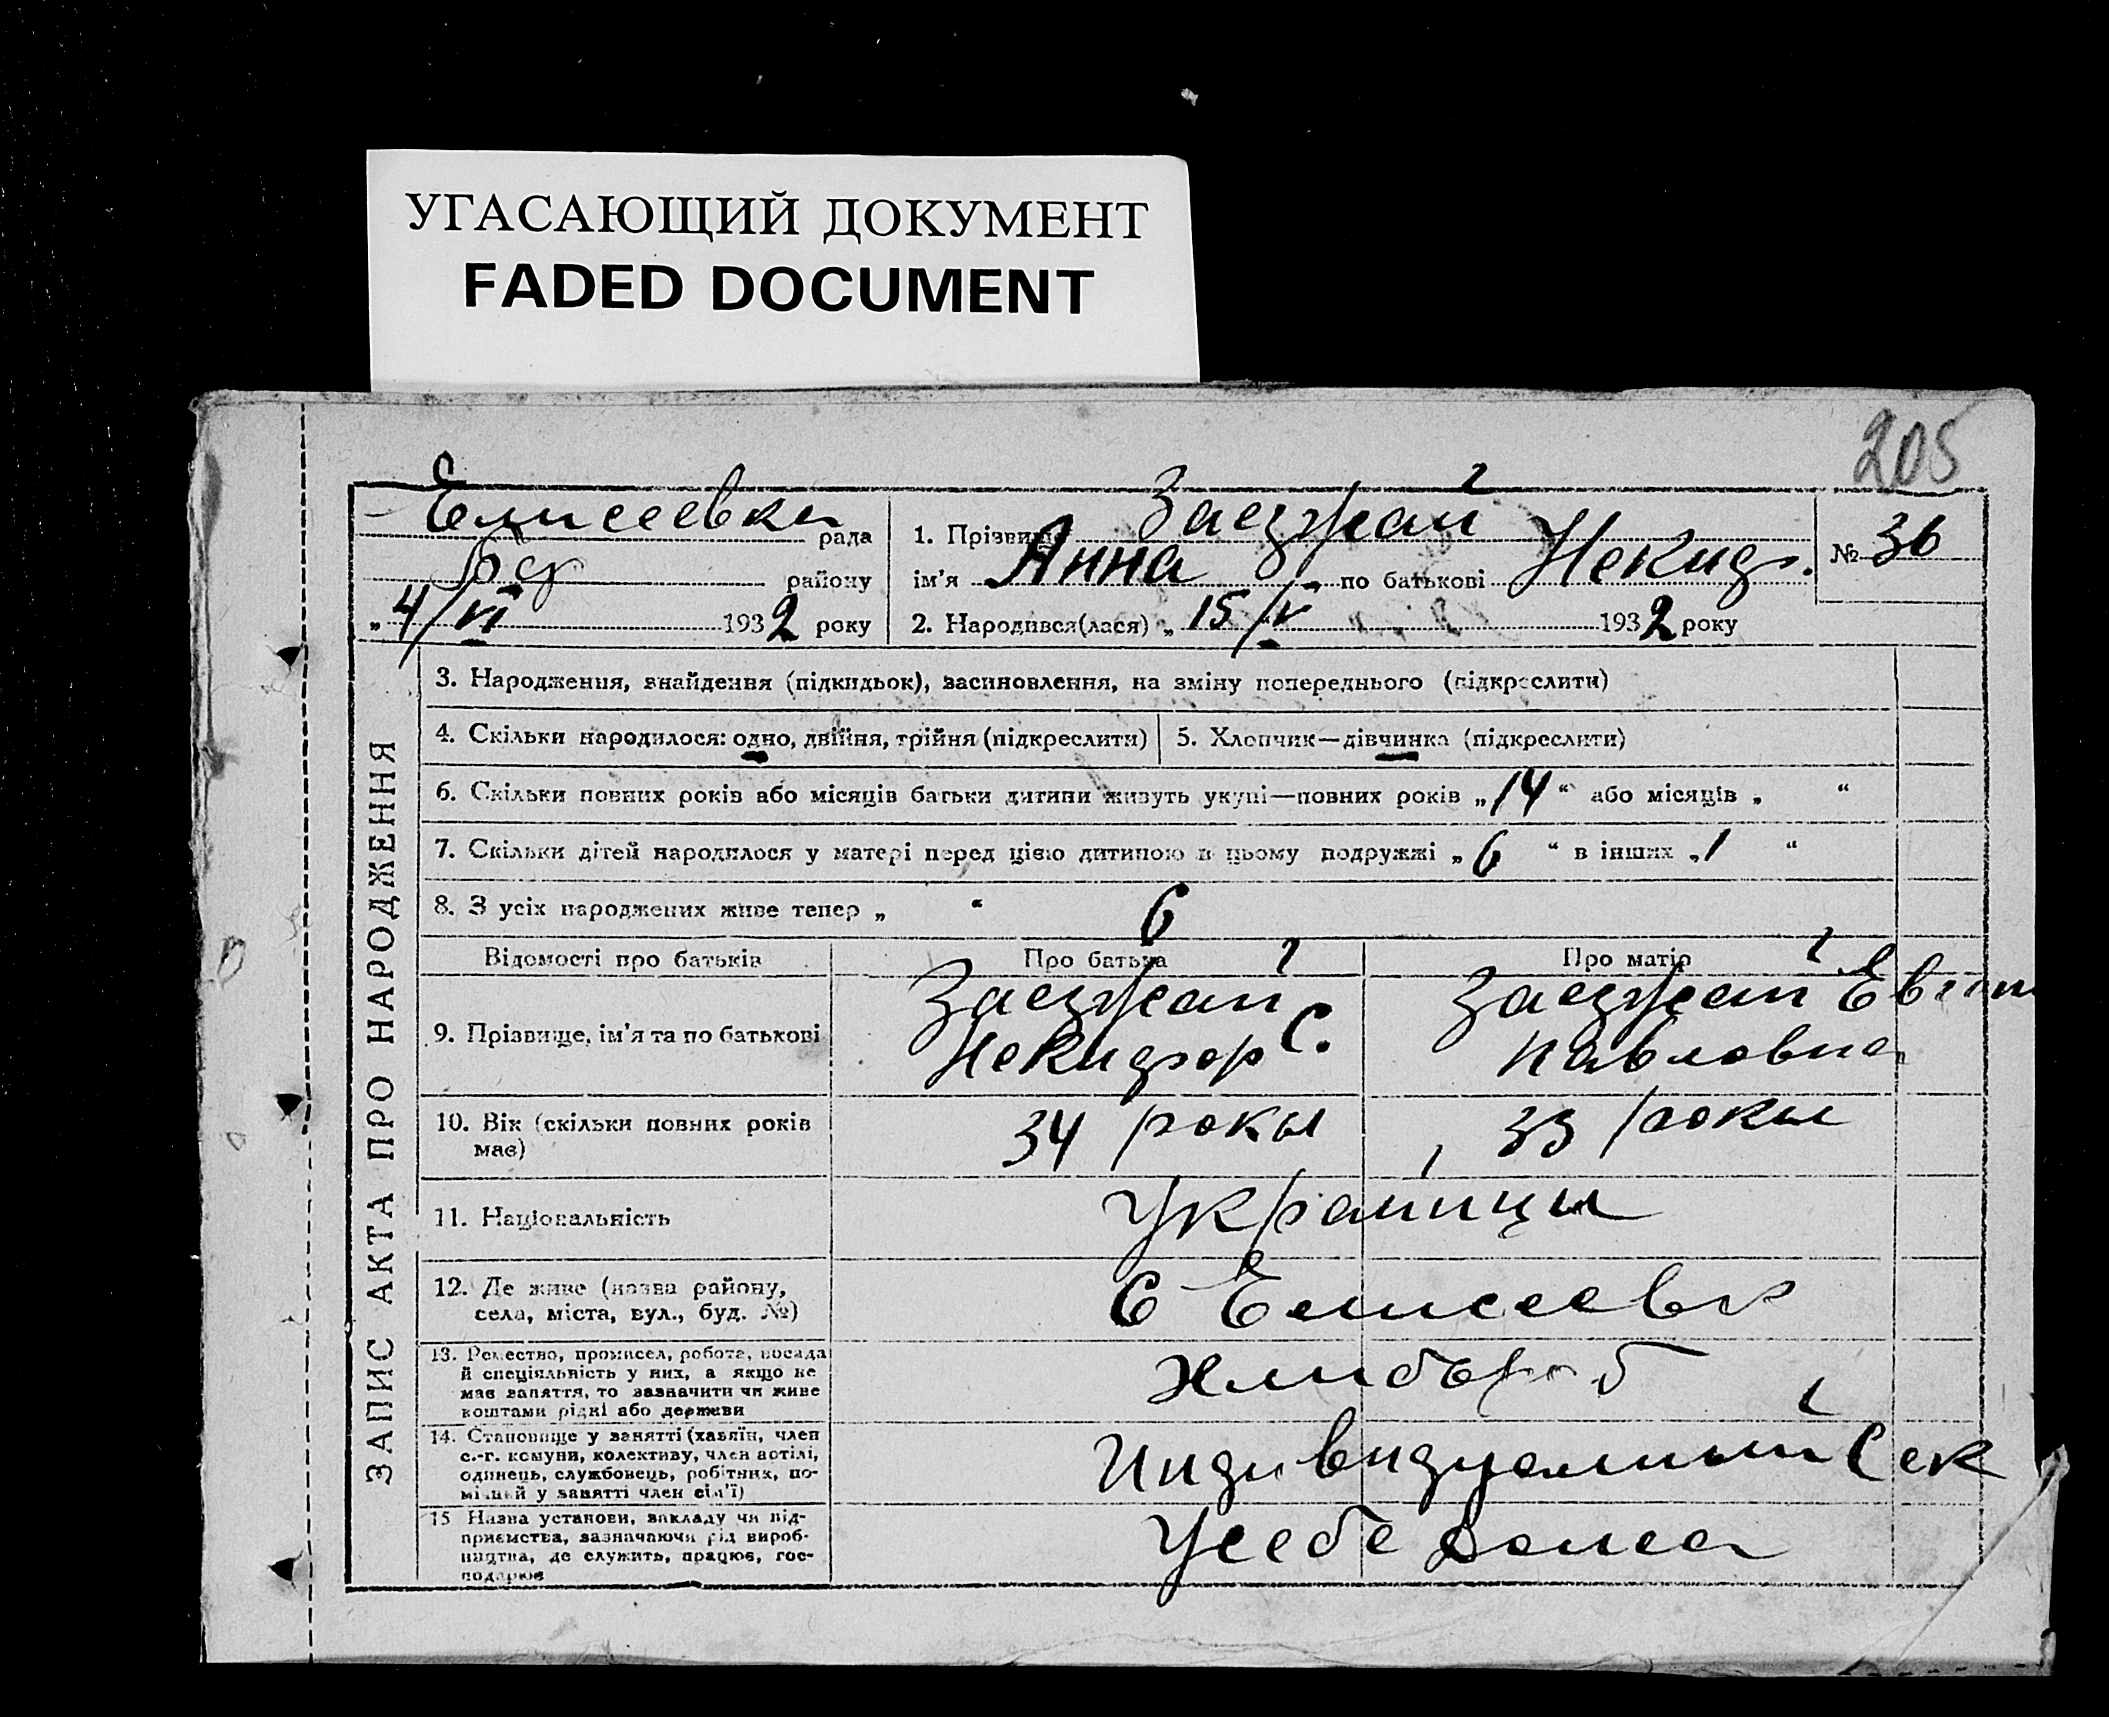 УГАСАЮЩИЙ ДОКУМЕНТ
FADED DOCUMENT
205
Елисеевка рада
району
„4/VI 1932 року
1. Прізвище Заезжай
ім'я Анна по батькові Некифр.
2. Народився(лася) „15/V 1932 року
№ 36
ЗАПИС АКТА ПРО НАРОДЖЕННЯ
3. Народження, знайдення (підкидьок), засиновлення, на зміну попереднього (підкреслити)
4. Скільки народилося: одно, двійня, трійня (підкреслити)
5. Хлопчик—дівчинка (підкреслити)
6. Скільки повних років або місяців батьки дитини живуть укупі—повних років „14“ або місяців „ “
7. Скільки дітей народилося у матері перед цією дитиною в цьому подружжі „6“ в інших „1 “
8. З усіх народжених живе тепер „ “ 6
Відомості про батьків
Про батька
Про матір
9. Прізвище, ім'я та по батькові
Заезжай
Некифор С.
Заезжай
Павловна
10. Вік (скільки повних років
має)
34 рокы
33 рокы
11. Національність
Украйицы
12. Де живе (назва району,
села, міста, вул., буд. №)
С Елисеевк
13. Ремество, промисел, робота, посада
й спеціяльність у них, а якщо не
має заняття, то зазначити чи живе
коштами рідні або держави
Хлибороб
14. Становище у занятті (хазяїн, член
с.-г. комуни, колективу, член артілі,
одинець, службовець, робітник, по-
мічний у занятті член сім'ї)
Индивидуальный Сек
15 Назва установи, закладу чи під-
приємства, зазначаючи рід вироб-
ництва, де служить, працює, гос-
подарює
У себе дома